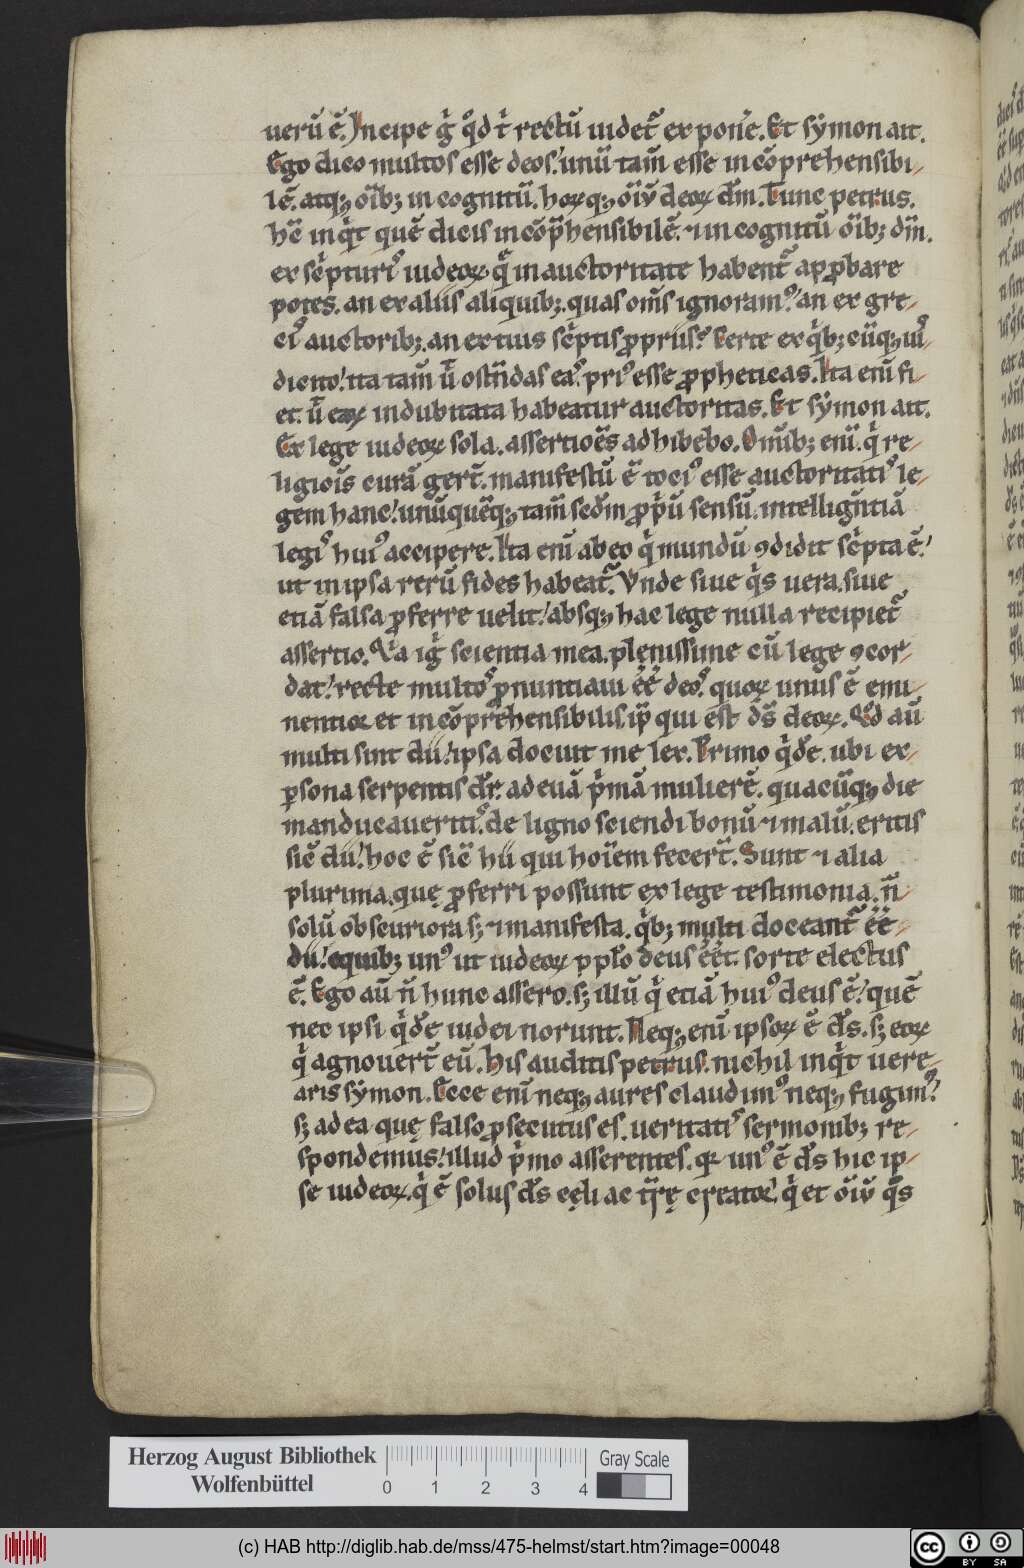 uerũ ẽ. Incipe gͥ qͦd tͥ rectũ uidet᷑ exponͥe. Et sẏmon ait.
Ego dico multos esse deos. unũ tam̃ esse incõprehensibi-
lẽ. atq; oĩb; incognitũ. hoꝝq; oĩũ deoꝝ dm̃. Tunc petrus.
hc̃ inqͥt quẽ dicis incõp̃hensibilẽ. ⁊ incognitũ oĩb; dm̃.
ex scͥpturꝰ iudeoꝝ. q̃ in auctoritate habent᷑ app̱bare
potes. an ex aliis aliquib;. quas om̃s ignoramꝰ. an ex gre-
cꝰ auctorib;. an ex tuis scͥptis ꝓpriis? Certe ex qͥb; cũq; uiꝰ
dicito. ita tam̃ ũ ostñdas eaꝰ. priꝰ esse ꝓpheticas. Ita enĩ fi-
et. ũ eaꝝ indubitata habeatur auctoritas. Et sẏmon ait.
Ex lege iudeoꝝ sola. assertiões adhibebo. Om̃ib; enĩ. qͥ re-
ligiõis curã gert̃. manifestũ ẽ tociꝰ esse auctoritatiꝰ le-
gem hanc. unũquẽq; tam̃ scd̃m ꝓpͥũ sensũ. intellignͣtiã
legiꝰ huiꝰ accipere. Ita enĩ ab eo qͥ mundũ ꝯdidit scͥpta ẽ.
ut in ipsa rerũ fides habeat᷑. Vnde siue qͥs uera. siue
etiã falsa ꝓferre uelit. absq; hac lege nulla recipiet᷑
assertio. Q̃a igͥ scientia mea. plenissime cũ lege ꝯcor-
dat. recte multoꝰ ꝓnuntiaui ẽẽ deoꝰ. quoꝝ unus ẽ emi-
nentior et incõprehensibilis. ip̃ qui est ds̃ deoꝝ. Qd̃ aũ
multi sint dii. ipsa docuit me lex. Primo qͥdẽ. ubi ex
ꝑsona serpentis dr̃. ad euã pͥmã mulierẽ. quacũq; die
manducaueritiꝰ. de ligno sciendi bonũ ⁊ malũ. eritis
sic̃ dii. hoc ẽ sic̃ hii qui hoĩem fecert̃. Sunt ⁊ alia
plurima. quę ꝓferri possunt ex lege testimonia. ñ
solũ obscuriora s; ⁊ manifesta. qͥb; multi doceant᷑ ẽẽ
dii. equib; unꝰ ut iudeoꝝ pp̃lo deus ẽẽt. sorte electus
ẽ. Ego aũ ñ hunc assero. s; illũ qͥ etiã huiꝰ deus ẽ. quẽ
nec ipsi qͥdẽ iudei norunt. Neq; enĩ ipsoꝝ ẽ ds̃. s; eoꝝ
qͥ agnouert̃ eũ. His auditis petrus. nichil inqͥt uere-
aris sẏmon. Ecce enĩ neq; aures claudimꝰ neq; fugimꝰ.
s; ad ea quę falso ꝓsecutus es. ueritatiꝰ sermonib; re-
spondemus. illud pͥmo asserentes. qr unꝰ ẽ ds̃ hic ip-
se iudeoꝝ. qͥ ẽ solus ds̃ cęli ac tr̃rę creator. qͥ et oĩũ q̃s
Herzog August Bibliothek
Wolfenbüttel
0 1 2 3 4
Gray Scale
(c) HAB http://diglib.hab.de/mss/475-helmst/start.htm?image=00048
cc BY SA